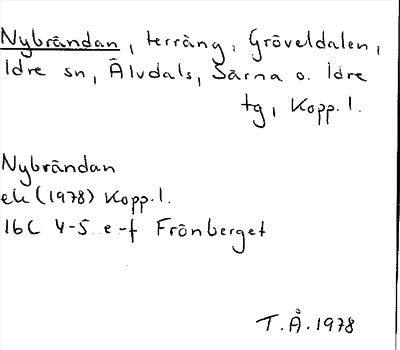 Nybrändan, terräng, Gröveldalen,
Idre sn, Älvdals, Särna o. Idre
tg, Kopp. l.
Nybrändan
ek (1978) Kopp. l.
16C 4-5 e-f Frönberget
T. Å. 1978